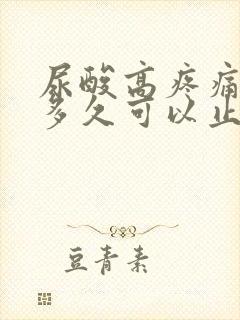 尿酸高疼痛
多久可以止
豆青素